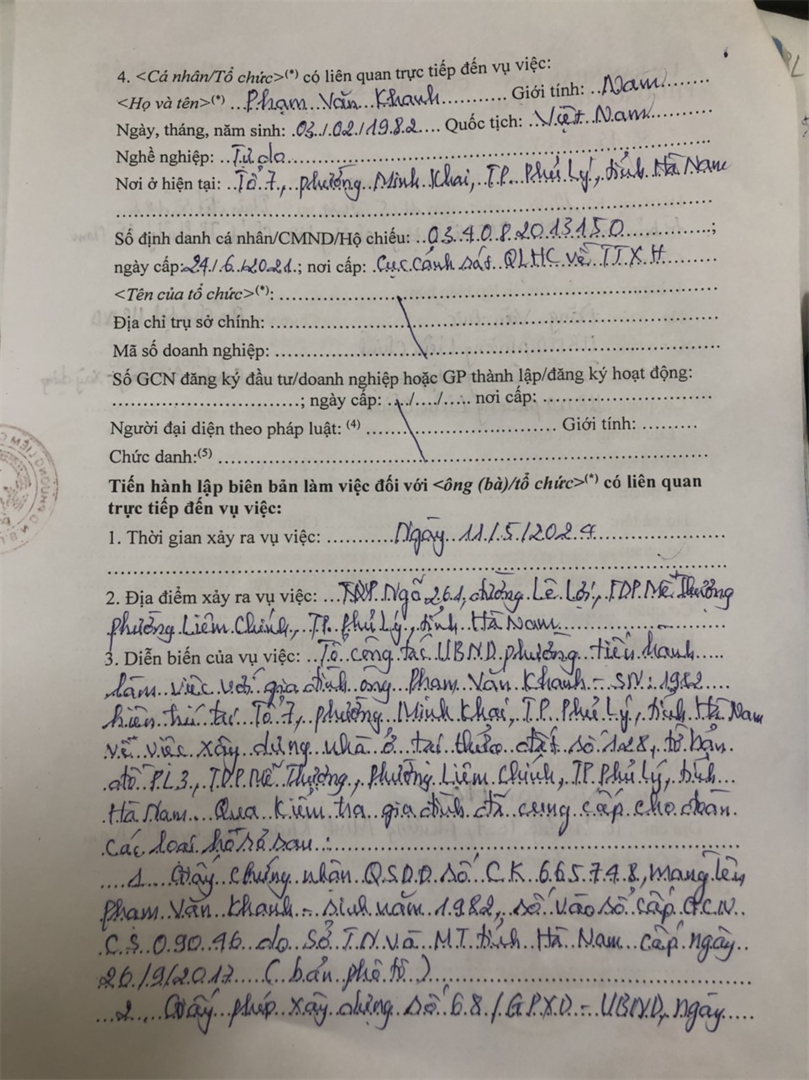 4. <Cá nhân/Tổ chức>(*) có liên quan trực tiếp đến vụ việc:
<Họ và tên>(*) ...Phạm Văn Khanh........... Giới tính: ..Nam.......
Ngày, tháng, năm sinh: .03./.02./1982.... Quốc tịch: .Việt Nam............
Nghề nghiệp: ..Tự do..........................
Nơi ở hiện tại: ..Tổ 7, phường Minh Khai, TP. Phủ Lý, tỉnh Hà Nam
Số định danh cá nhân/CMND/Hộ chiếu: ..034082013150..............;
ngày cấp:24./.6./2021.; nơi cấp: .Cục cảnh sát QLHC về TTXH
<Tên của tổ chức>(*): ..........................
Địa chỉ trụ sở chính: ..........................
Mã số doanh nghiệp: ..........................
Số GCN đăng ký đầu tư/doanh nghiệp hoặc GP thành lập/đăng ký hoạt động:
..............................; ngày cấp: .../..../..... nơi cấp: ..........................
Người đại diện theo pháp luật: (4) .............................. Giới tính: .........
Chức danh:(5) ..........................
Tiến hành lập biên bản làm việc đối với <ông (bà)/tổ chức>(*) có liên quan
trực tiếp đến vụ việc:
1. Thời gian xảy ra vụ việc: ...........Ngày 11/5/2024....................
2. Địa điểm xảy ra vụ việc: ... Ngõ 261, đường Lê Lợi, TDP Mễ Thượng
phường Liêm Chính, TP. Phủ Lý, tỉnh Hà Nam..............
3. Diễn biến của vụ việc: ..Tổ công tác UBND phường tiến hành.....
làm việc với gia đình ông Phạm Văn Khanh - SN: 1982....
hiện trú tại Tổ 7, phường Minh Khai, TP Phủ Lý, tỉnh Hà Nam
về việc xây dựng nhà ở tại thửa đất số 128, tờ bản
đồ PL3, TDP Mễ Thượng, phường Liêm Chính, TP Phủ Lý, tỉnh...
Hà Nam. Qua kiểm tra gia đình đã cung cấp cho đoàn
các loại hồ sơ sau :..........................
....1. Giấy chứng nhận QSDĐ số CK 665748, mang tên
Phạm Văn Khanh - sinh năm 1982, số vào sổ cấp GCN
CS 09046 do Sở TN và MT tỉnh Hà Nam cấp ngày..
26/9/2017 ( bản phô tô )..........................
...2... Giấy phép xây dựng số 68/GPXD - UBND, ngày.....